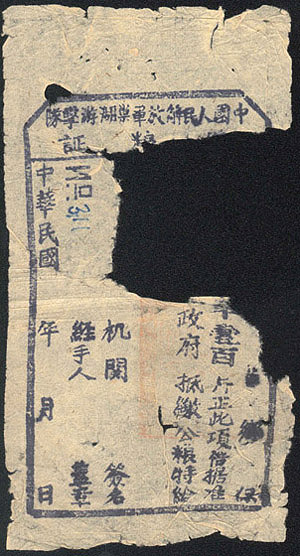 中國人民解放軍巢湖游擊隊
証
鄉 保
壹百斤正此項借据准
政府抵繳公粮特給
机関 簽名
經手人 蓋章
中華民國 年 月 日